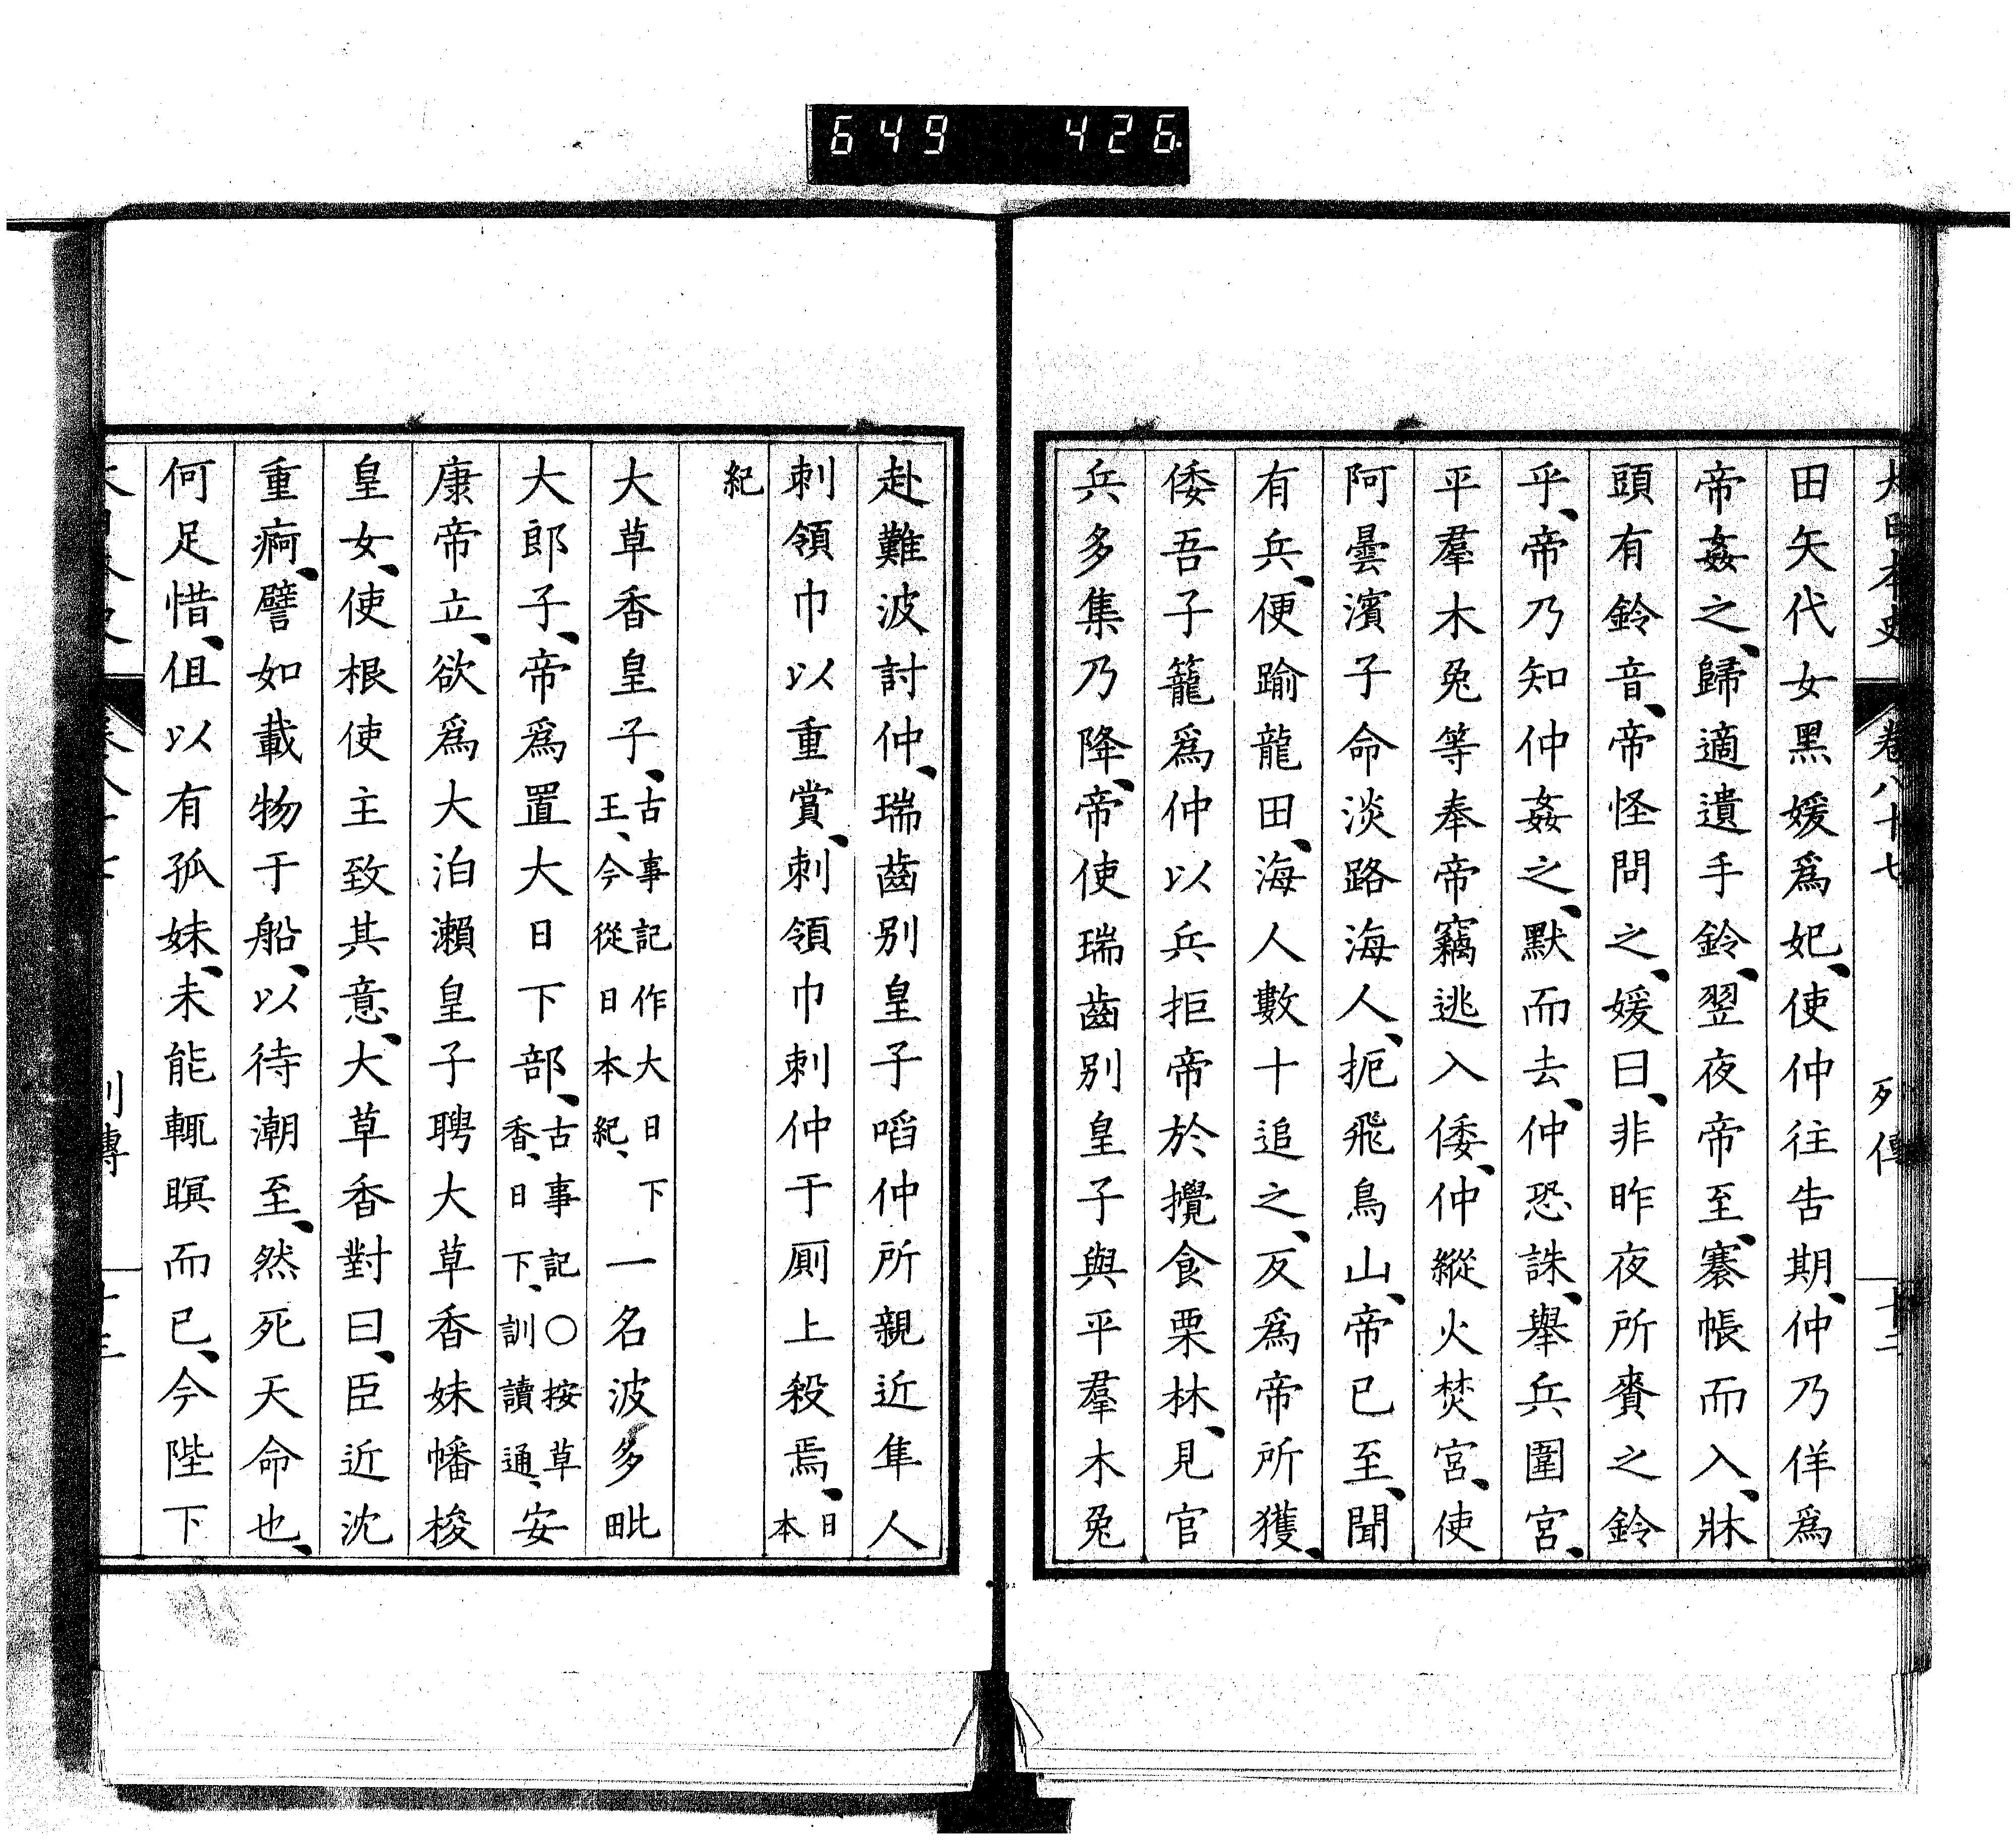 649 426.
大日本史 卷八十七 列傳 十二
田矢代女黑媛爲妃、使仲往告期、仲乃佯爲
帝姦之、歸適遺手鈴、翌夜帝至、褰帳而入、牀
頭有鈴音、帝怪問之、媛曰、非昨夜所賚之鈴
乎、帝乃知仲姦之、默而去、仲恐誅、擧兵圍宮、
平羣木兔等奉帝竊逃入倭、仲縱火焚宮、使
阿曇濱子命淡路海人、扼飛鳥山、帝已至、聞
有兵、便踰龍田、海人數十追之、反爲帝所獲、
倭吾子籠爲仲以兵拒帝於攪食栗林、見官
兵多集乃降、帝使瑞齒別皇子與平羣木兔
赴難波討仲、瑞齒別皇子啗仲所親近隼人
刺領巾以重賞、刺領巾刺仲于厠上殺焉、日本
紀
大草香皇子、古事記作大日下王、今從日本紀、一名波多毗
大郎子、帝爲置大日下部、古事記〇按草香、日下、訓讀通、安
康帝立、欲爲大泊瀨皇子聘大草香妹幡梭
皇女、使根使主致其意、大草香對曰、臣近沈
重痾、譬如載物于船、以待潮至、然死天命也、
何足惜、伹以有孤妹、未能輒瞑而已、今陛下